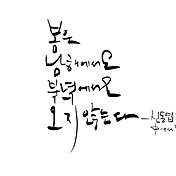 봄은
남해에서도
북녘에서도
오지 않는다 - 신동엽
中에서